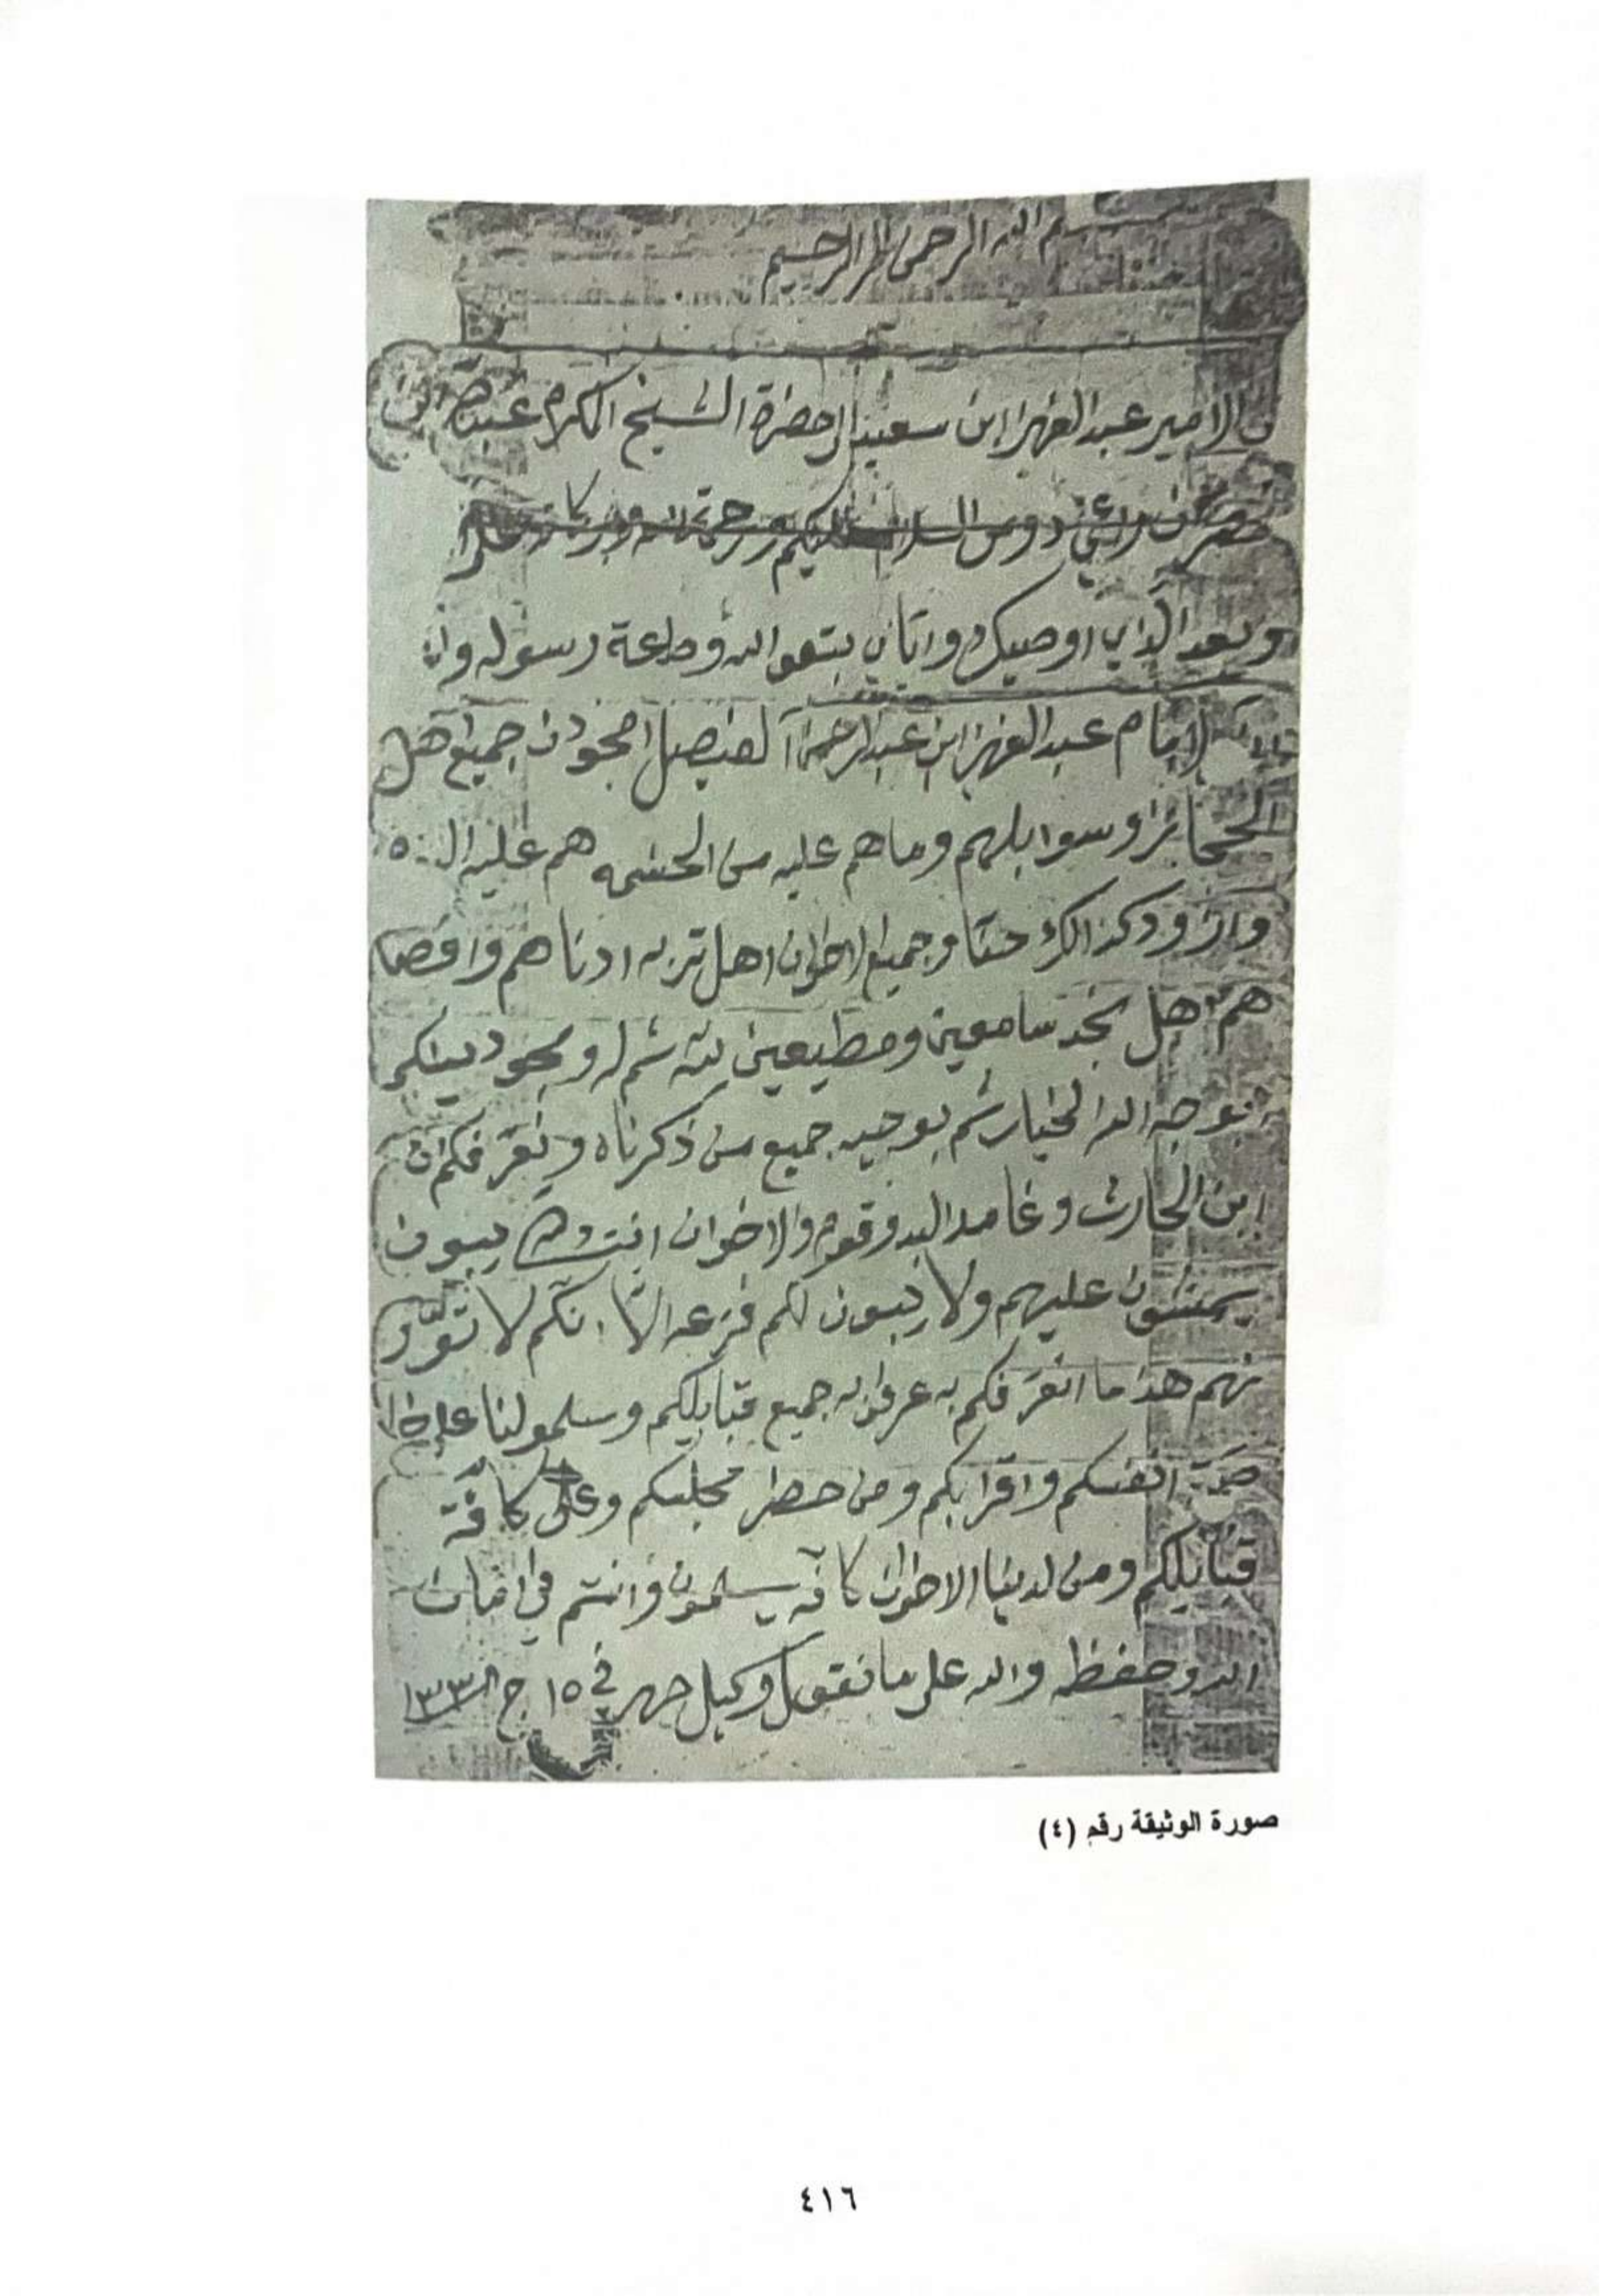 بسم الله الرحمن الرحيم
الامير عبد العزيز ابن سعيد الى حضرة الشيخ المكرم
دوس السلام عليكم ورحمة الله وبركاته
وبعد الذي اوصيك واياي بتقوا الله وطاعة رسوله وان
الامام عبد العزيز ابن عبد الرحمن آل فيصل جميع اهل
الحجاز وسوابلهم وما هم عليه من الحشمه هم عليه
وازود كذالك حنا وجميع الاخوان اهل تربه ادناهم واقصا
هم اهل نجد سامعين ومطيعين لله ثم له
بوجه الله ثم بوجيه جميع من ذكرناه ونعرفكم ان
ابن الحارث وغامد البدو وقوم والاخوان يبيون
يمشون عليهم ولا يبيون لكم فزعه الا انكم لا
نهم هذا ما انعرفكم به عرفوا به جميع قبايلكم وسلمو لنا على
انفسكم واقرابكم ومن حظر مجلسكم وعلى كافة
قبايلكم ومن لدينا الاخوان كافه يسلمون وانتم في امان
الله وحفظه والله على ما نقول وكيل حرر في ١٥ ج
صورة الوثيقة رقم (٤)
٤١٦